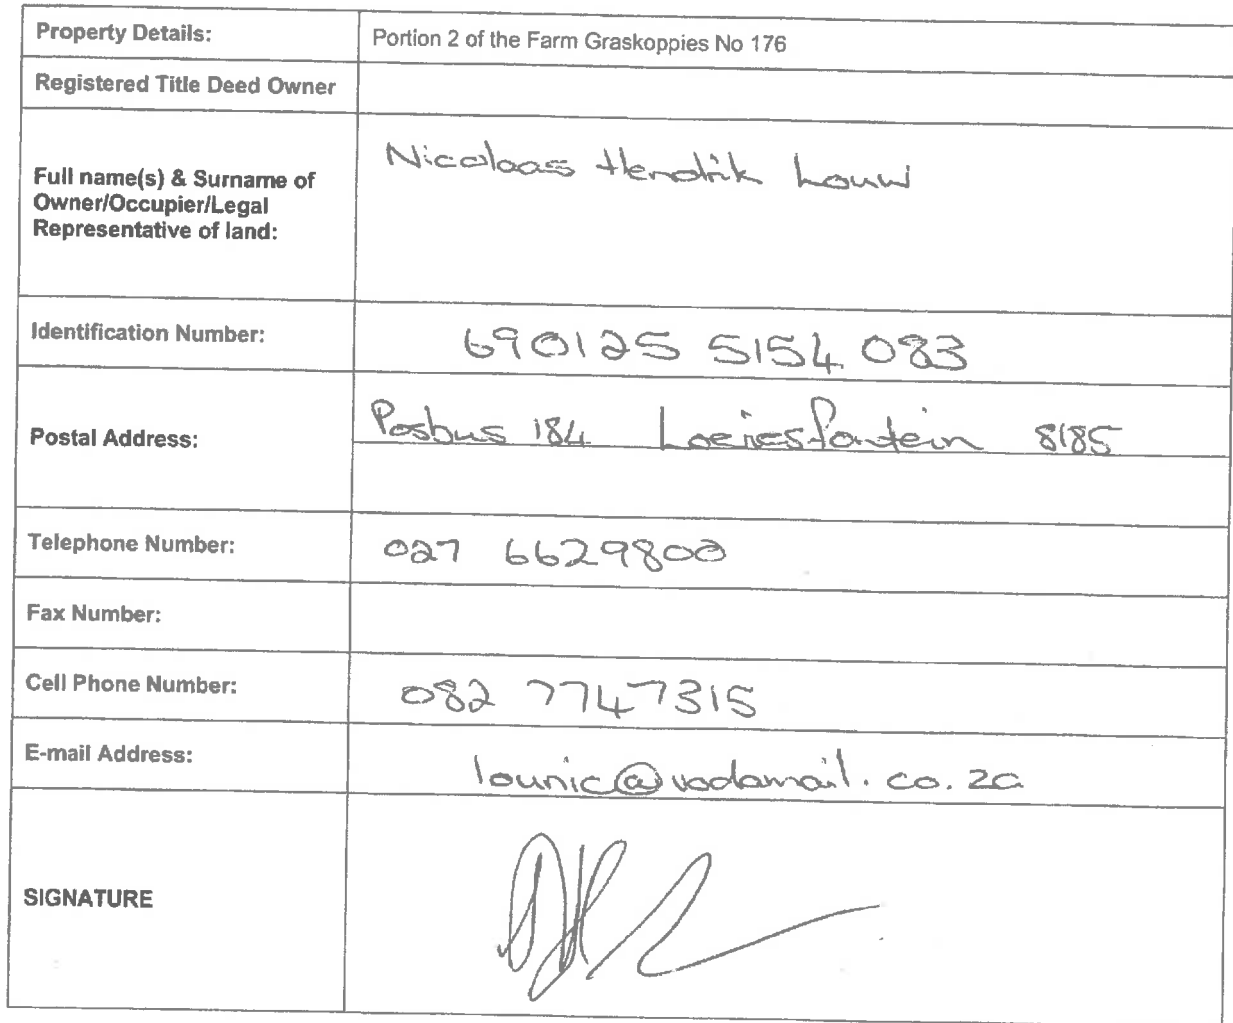 Property Details: Portion 2 of the Farm Graskoppies No 176
Registered Title Deed Owner
Full name(s) & Surname of
Owner/Occupier/Legal
Representative of land:
Nicolaas Hendrik Louw
Identification Number: 690125 5154 083
Postal Address: Posbus 184 Loeriesfontein 8185
Telephone Number: 027 6629800
Fax Number:
Cell Phone Number: 082 7747315
E-mail Address: lounic@vodamail.co.za
SIGNATURE